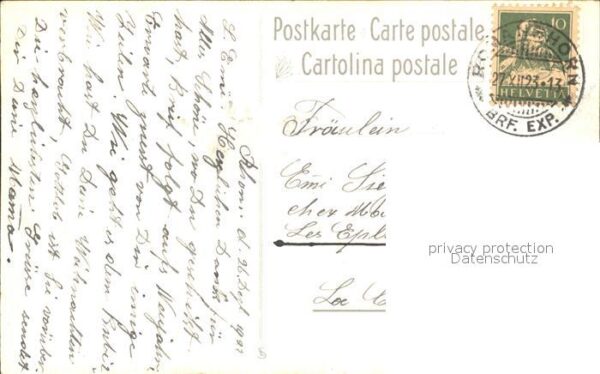 Postkarte Carte postale
Cartolina postale
10
HELVETIA
ROMANSHORN
27.XII.23.-13
BRF. EXP.
Fräulein
Emi Sie
cher
Les Epla
La C
privacy protection
Datenschutz
Rhorn d. 26. Dez. 1923
L. Emi! Herzlichen Dank für
Alles Schöne, wo Du geschickt
hast, Brief folgt aufs Neujahr.
Erwarte zuerst von Dir einige
Zeilen. Wie geht es dem
Wie hast Du Deine Weihnachten
verbracht, Gottlob ist sie vorüber.
Die herzlichsten Grüsse sendet
Dir Deine Mama.